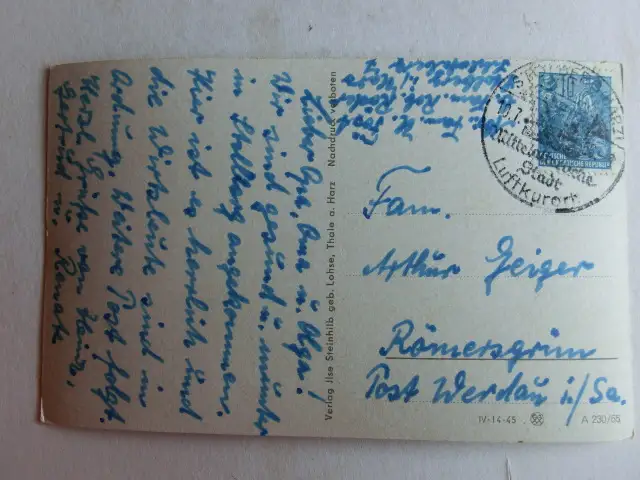 Lieber Opa, Oma u. Olga!
Wir sind gesund u. munter
in Stollberg angekommen.
Hier ist es herrlich und
die Wirtsleute sind in
Ordnung. Weitere Post folgt.
Herzl. Grüße von Heinz,
Gertrud u. Renate
Verlag Ilse Steinhilb geb. Lohse, Thale a. Harz Nachdruck verboten
10.7.
Mittelalterliche
Stadt
Luftkurort
Fam.
Arthur Geiger
Römersgrün
Post Werdau i/Sa.
IV-14-45 A 230/65